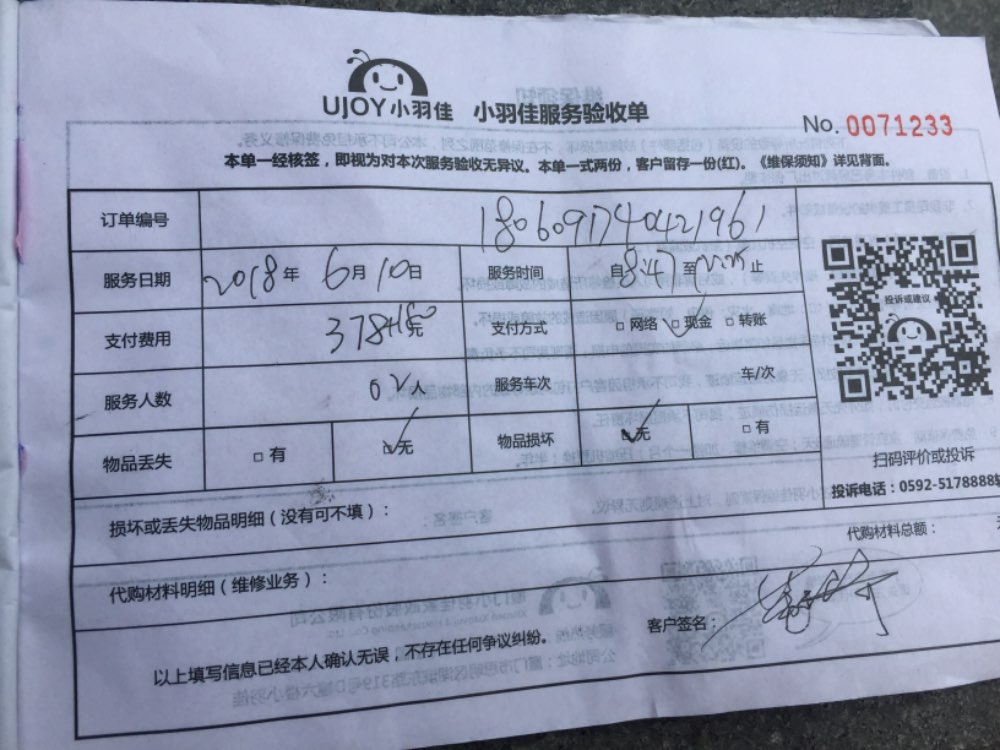 UJOY小羽佳 小羽佳服务验收单
No. 0071233
本单一经核签，即视为对本次服务验收无异议。本单一式两份，客户留存一份(红)。《维保须知》详见背面。
订单编号 1806091740421961
服务日期 2018年 6月10日 服务时间 自8:47至 止
支付费用 元 支付方式 □网络 □现金 □转账
服务人数 服务车次 车/次
物品丢失 □有 □无 物品损坏 □无 □有
投诉或建议
扫码评价或投诉
投诉电话：0592-5178888
损坏或丢失物品明细（没有可不填）：
代购材料明细（维修业务）：
代购材料总额：
客户签名：
以上填写信息已经本人确认无误，不存在任何争议纠纷。